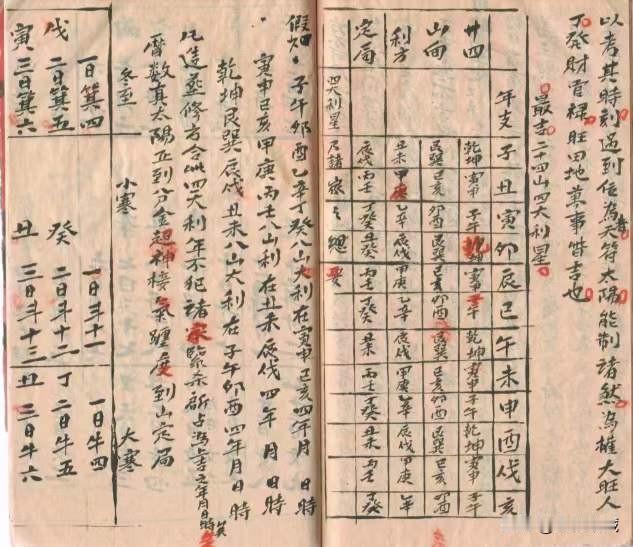 以考其時刻遇到位者為天符太陽能制諸煞為權大旺人
丁發財官祿旺田地萬事皆吉也
最吉二十四山四大利星
年支子丑寅卯辰巳午未申酉戌亥
廿四 乾坤 寅申 子午 乾坤 寅申 子午 乾坤 寅申 子午 乾坤 寅申 子午
山面 艮巽 巳亥 卯酉 艮巽 巳亥 卯酉 艮巽 巳亥 卯酉 艮巽 巳亥 卯酉
利方 丑未 甲庚 乙辛 辰戌 甲庚 乙辛 辰戌 甲庚 乙辛 辰戌 甲庚
定局 辰戌 丙壬 丁癸 丑未 丙壬 丁癸 丑未 丙壬 丁癸 丑未 丙壬 丁癸
四大利星乃諸家之總要
假如子午卯酉乙辛丁癸八山大利在寅申巳亥四年月日時
寅申巳亥甲庚丙壬八山利在丑未辰戌四年月日時
乾坤艮巽辰戌丑未八山大利在子午卯酉四年月日時
凡造葬修方合此四大利年不犯諸家
曆數真太陽正到分金超神接氣躔度到山定局
冬至 小寒 大寒
一日箕四 一日斗十一 一日牛四
戌 二日箕五 癸 二日斗十二 丁 二日牛五
寅 三日箕六 丑 三日斗十三 丑 三日牛六